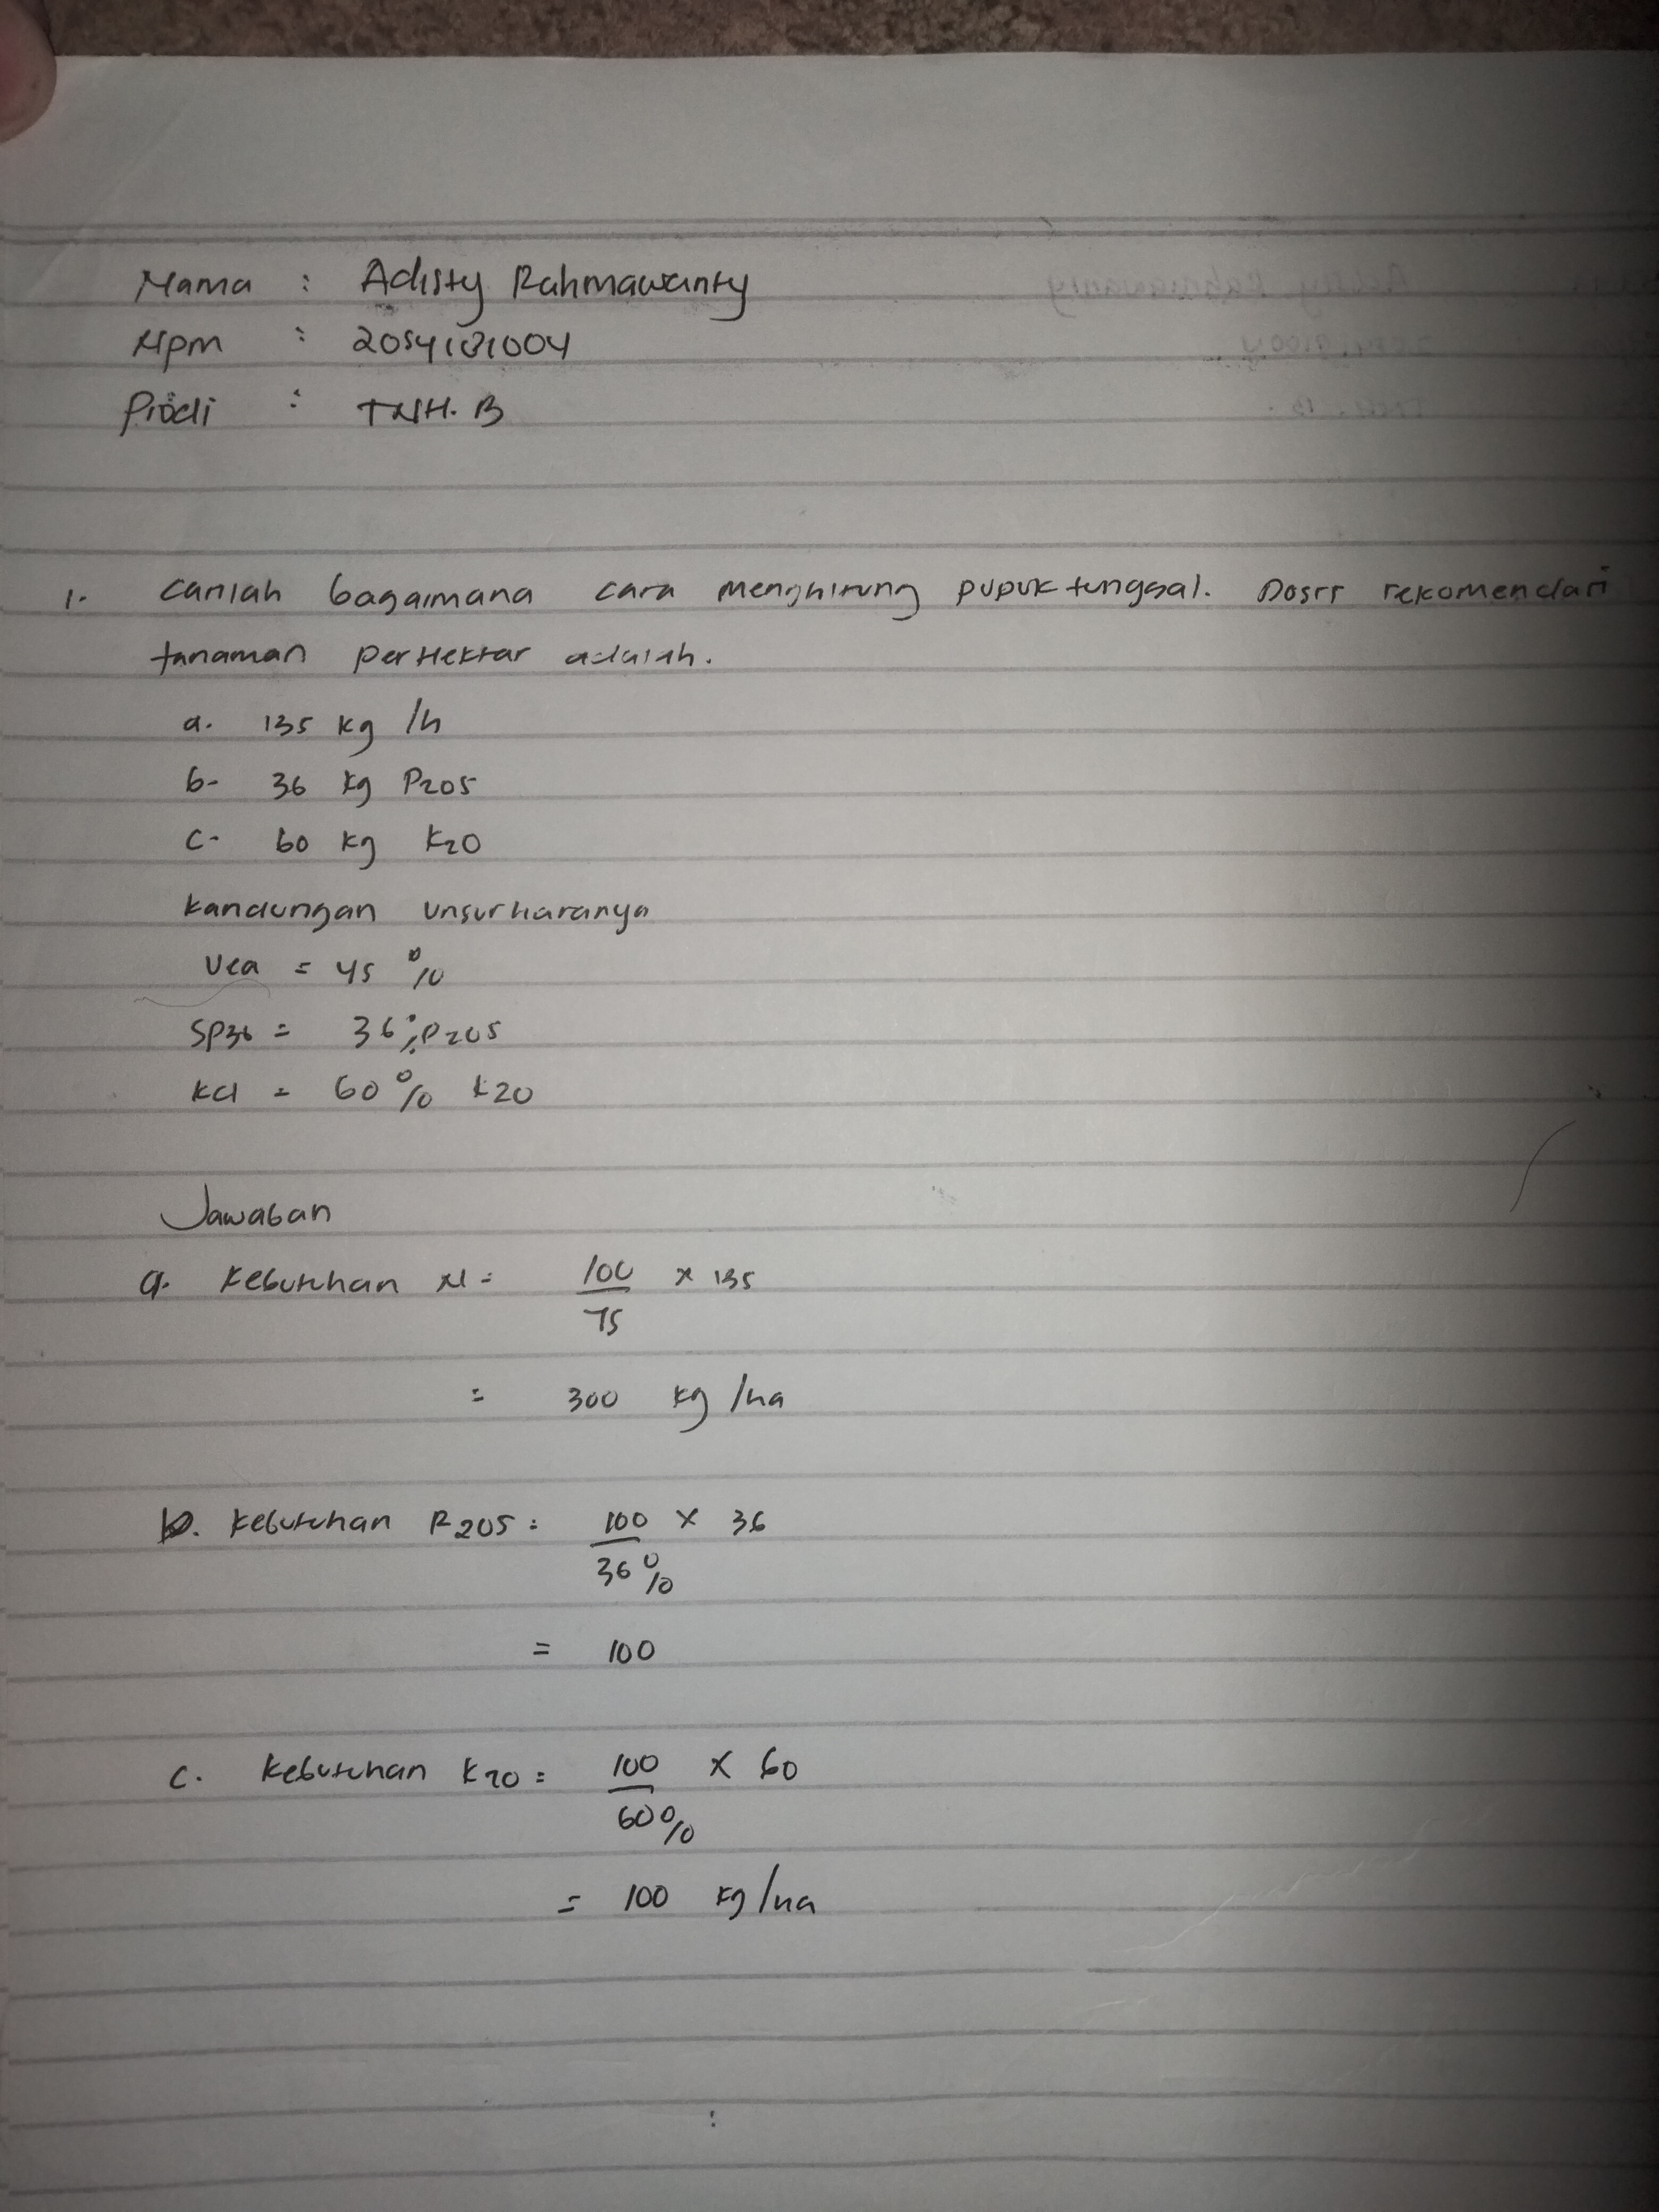 Nama : Adisty Rahmawanty
Npm : 2054181004
Prodi : TNH. B
1. Carilah bagaimana cara menghitung pupuk tunggal. Dosis rekomendasi
tanaman perHektar adalah.
a. 135 kg /h
b. 36 kg P2O5
c. 60 kg K2O
kandungan unsur haranya
Urea = 45 %
SP36 = 36% P2O5
KCl = 60 % K2O
Jawaban
a. Kebutuhan N = 100 x 135
75
= 300 kg /ha
b. Kebutuhan P2O5 = 100 x 36
36 %
= 100
c. Kebutuhan K2O = 100 x 60
60%
= 100 kg/ha